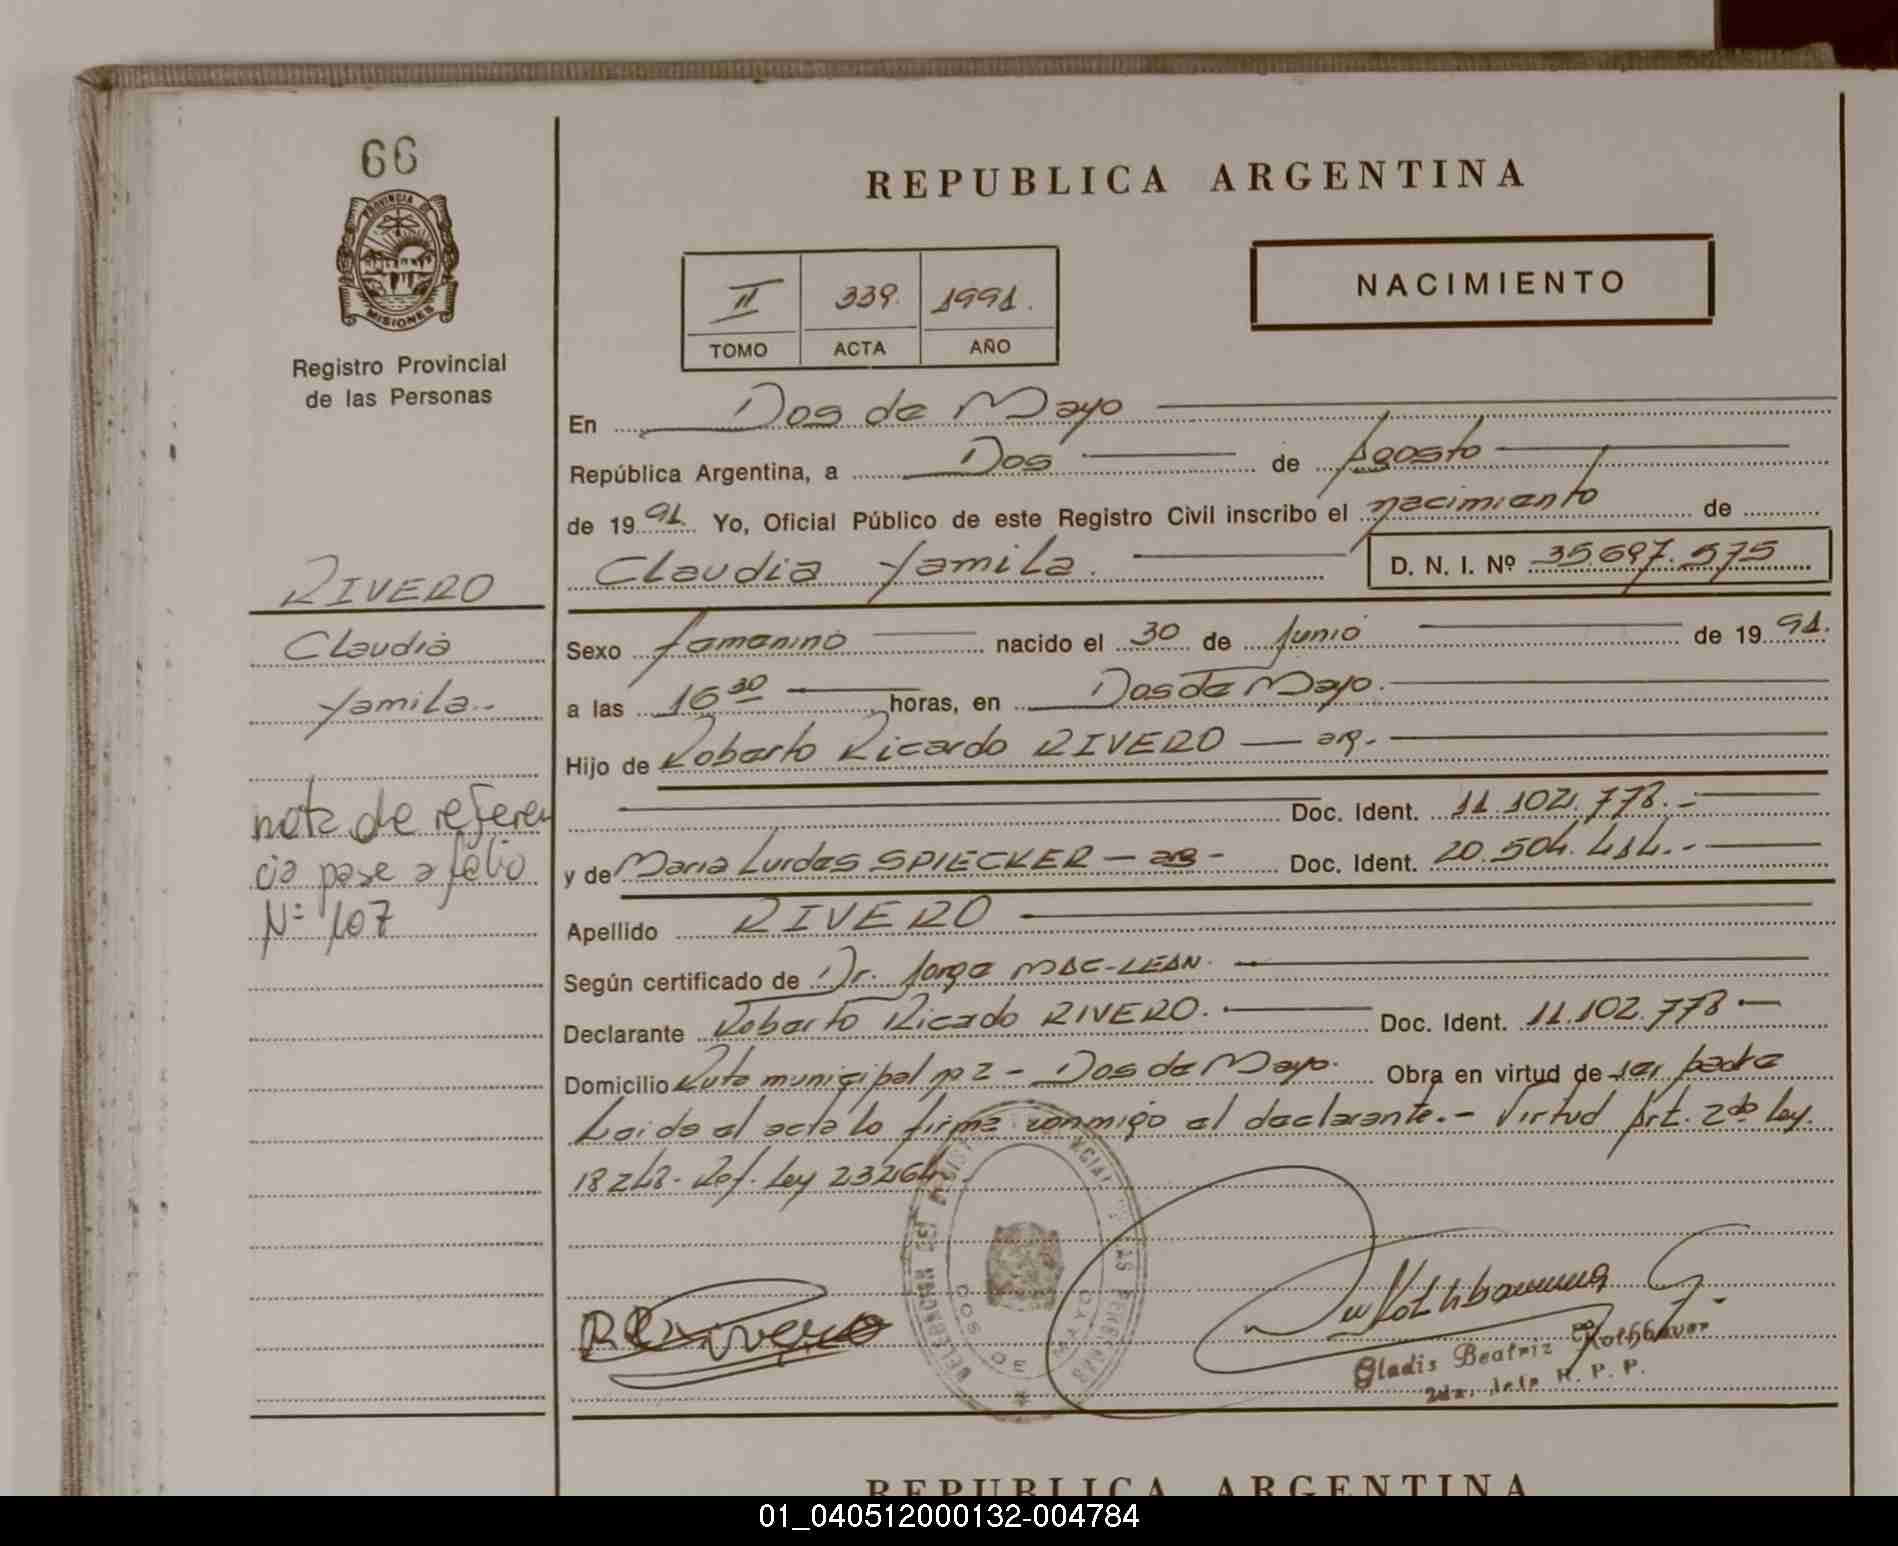 66
REPUBLICA ARGENTINA
PROVINCIA DE
MISIONES
Registro Provincial
de las Personas
II 339. 1991.
TOMO ACTA AÑO
NACIMIENTO
En Dos de Mayo
República Argentina, a Dos de Agosto
de 19 91. Yo, Oficial Público de este Registro Civil inscribo el nacimiento de
Claudia Yamila. D. N. I. Nº 35.697.575
RIVERO
Claudia
Yamila.-
Sexo femenino nacido el 30 de Junio de 19 91.
a las 16 30 horas, en Dos de Mayo.
Hijo de Roberto Ricardo RIVERO — arg.-
Doc. Ident. 11.102.778.-
y de Maria Lurdes SPIECKER — arg - Doc. Ident. 20.504.414.-
nota de referen
cia pase a folio
Nº 107
Apellido RIVERO
Según certificado de Dr. Jorge MAC-LEAN.
Declarante Roberto Ricado RIVERO. Doc. Ident. 11.102.778
Domicilio Ruta municipal nº 2 - Dos de Mayo. Obra en virtud de ser padre
Leida el acta lo firma conmigo el declarante.- Virtud Art. 2do Ley.
18248. Ref. Ley 23264.
DOS DE MAYO
R Rivero
Gladis Beatriz Rothbauer
2da. Jefe R. P. P.
REPUBLICA ARGENTINA
01_040512000132-004784